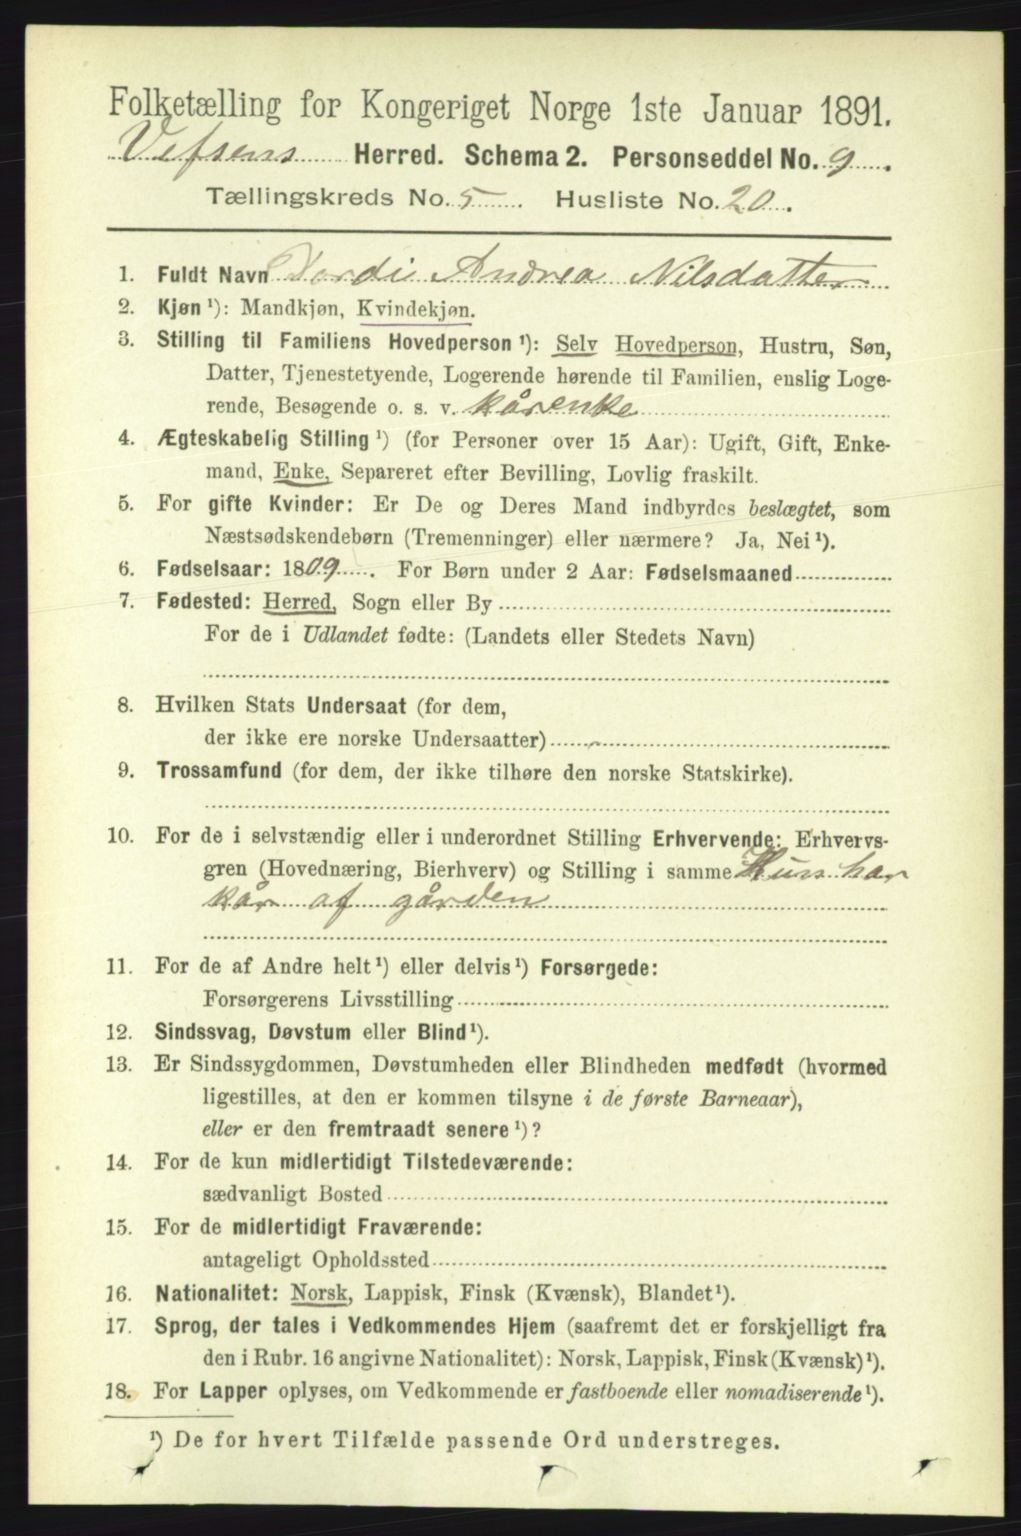 Folketælling for Kongeriget Norge 1ste Januar 1891.
Vefsens Herred. Schema 2. Personseddel No. 9.
Tællingskreds No. 5. Husliste No. 20.
1. Fuldt Navn Andrea Nilsdatter
2. Kjøn ¹): Mandkjøn, Kvindekjøn.
3. Stilling til Familiens Hovedperson ¹): Selv Hovedperson, Hustru, Søn,
Datter, Tjenestetyende, Logerende hørende til Familien, enslig Loge-
rende, Besøgende o. s. v. kårenke
4. Ægteskabelig Stilling ¹) (for Personer over 15 Aar): Ugift, Gift, Enke-
mand, Enke, Separeret efter Bevilling, Lovlig fraskilt.
5. For gifte Kvinder: Er De og Deres Mand indbyrdes beslægtet, som
Næstsødskendebørn (Tremenninger) eller nærmere? Ja, Nei ¹).
6. Fødselsaar: 1809. For Børn under 2 Aar: Fødselsmaaned
7. Fødested: Herred, Sogn eller By
For de i Udlandet fødte: (Landets eller Stedets Navn)
8. Hvilken Stats Undersaat (for dem,
der ikke ere norske Undersaatter)
9. Trossamfund (for dem, der ikke tilhøre den norske Statskirke).
10. For de i selvstændig eller i underordnet Stilling Erhvervende: Erhvervs-
gren (Hovednæring, Bierhverv) og Stilling i samme Hun har
kår af gården
11. For de af Andre helt ¹) eller delvis ¹) Forsørgede:
Forsørgerens Livsstilling
12. Sindssvag, Døvstum eller Blind ¹).
13. Er Sindssygdommen, Døvstumheden eller Blindheden medfødt (hvormed
ligestilles, at den er kommen tilsyne i de første Barneaar),
eller er den fremtraadt senere ¹)?
14. For de kun midlertidigt Tilstedeværende:
sædvanligt Bosted
15. For de midlertidigt Fraværende:
antageligt Opholdssted
16. Nationalitet: Norsk, Lappisk, Finsk (Kvænsk), Blandet ¹).
17. Sprog, der tales i Vedkommendes Hjem (saafremt det er forskjelligt fra
den i Rubr. 16 angivne Nationalitet): Norsk, Lappisk, Finsk (Kvænsk) ¹).
18. For Lapper oplyses, om Vedkommende er fastboende eller nomadiserende ¹).
¹) De for hvert Tilfælde passende Ord understreges.